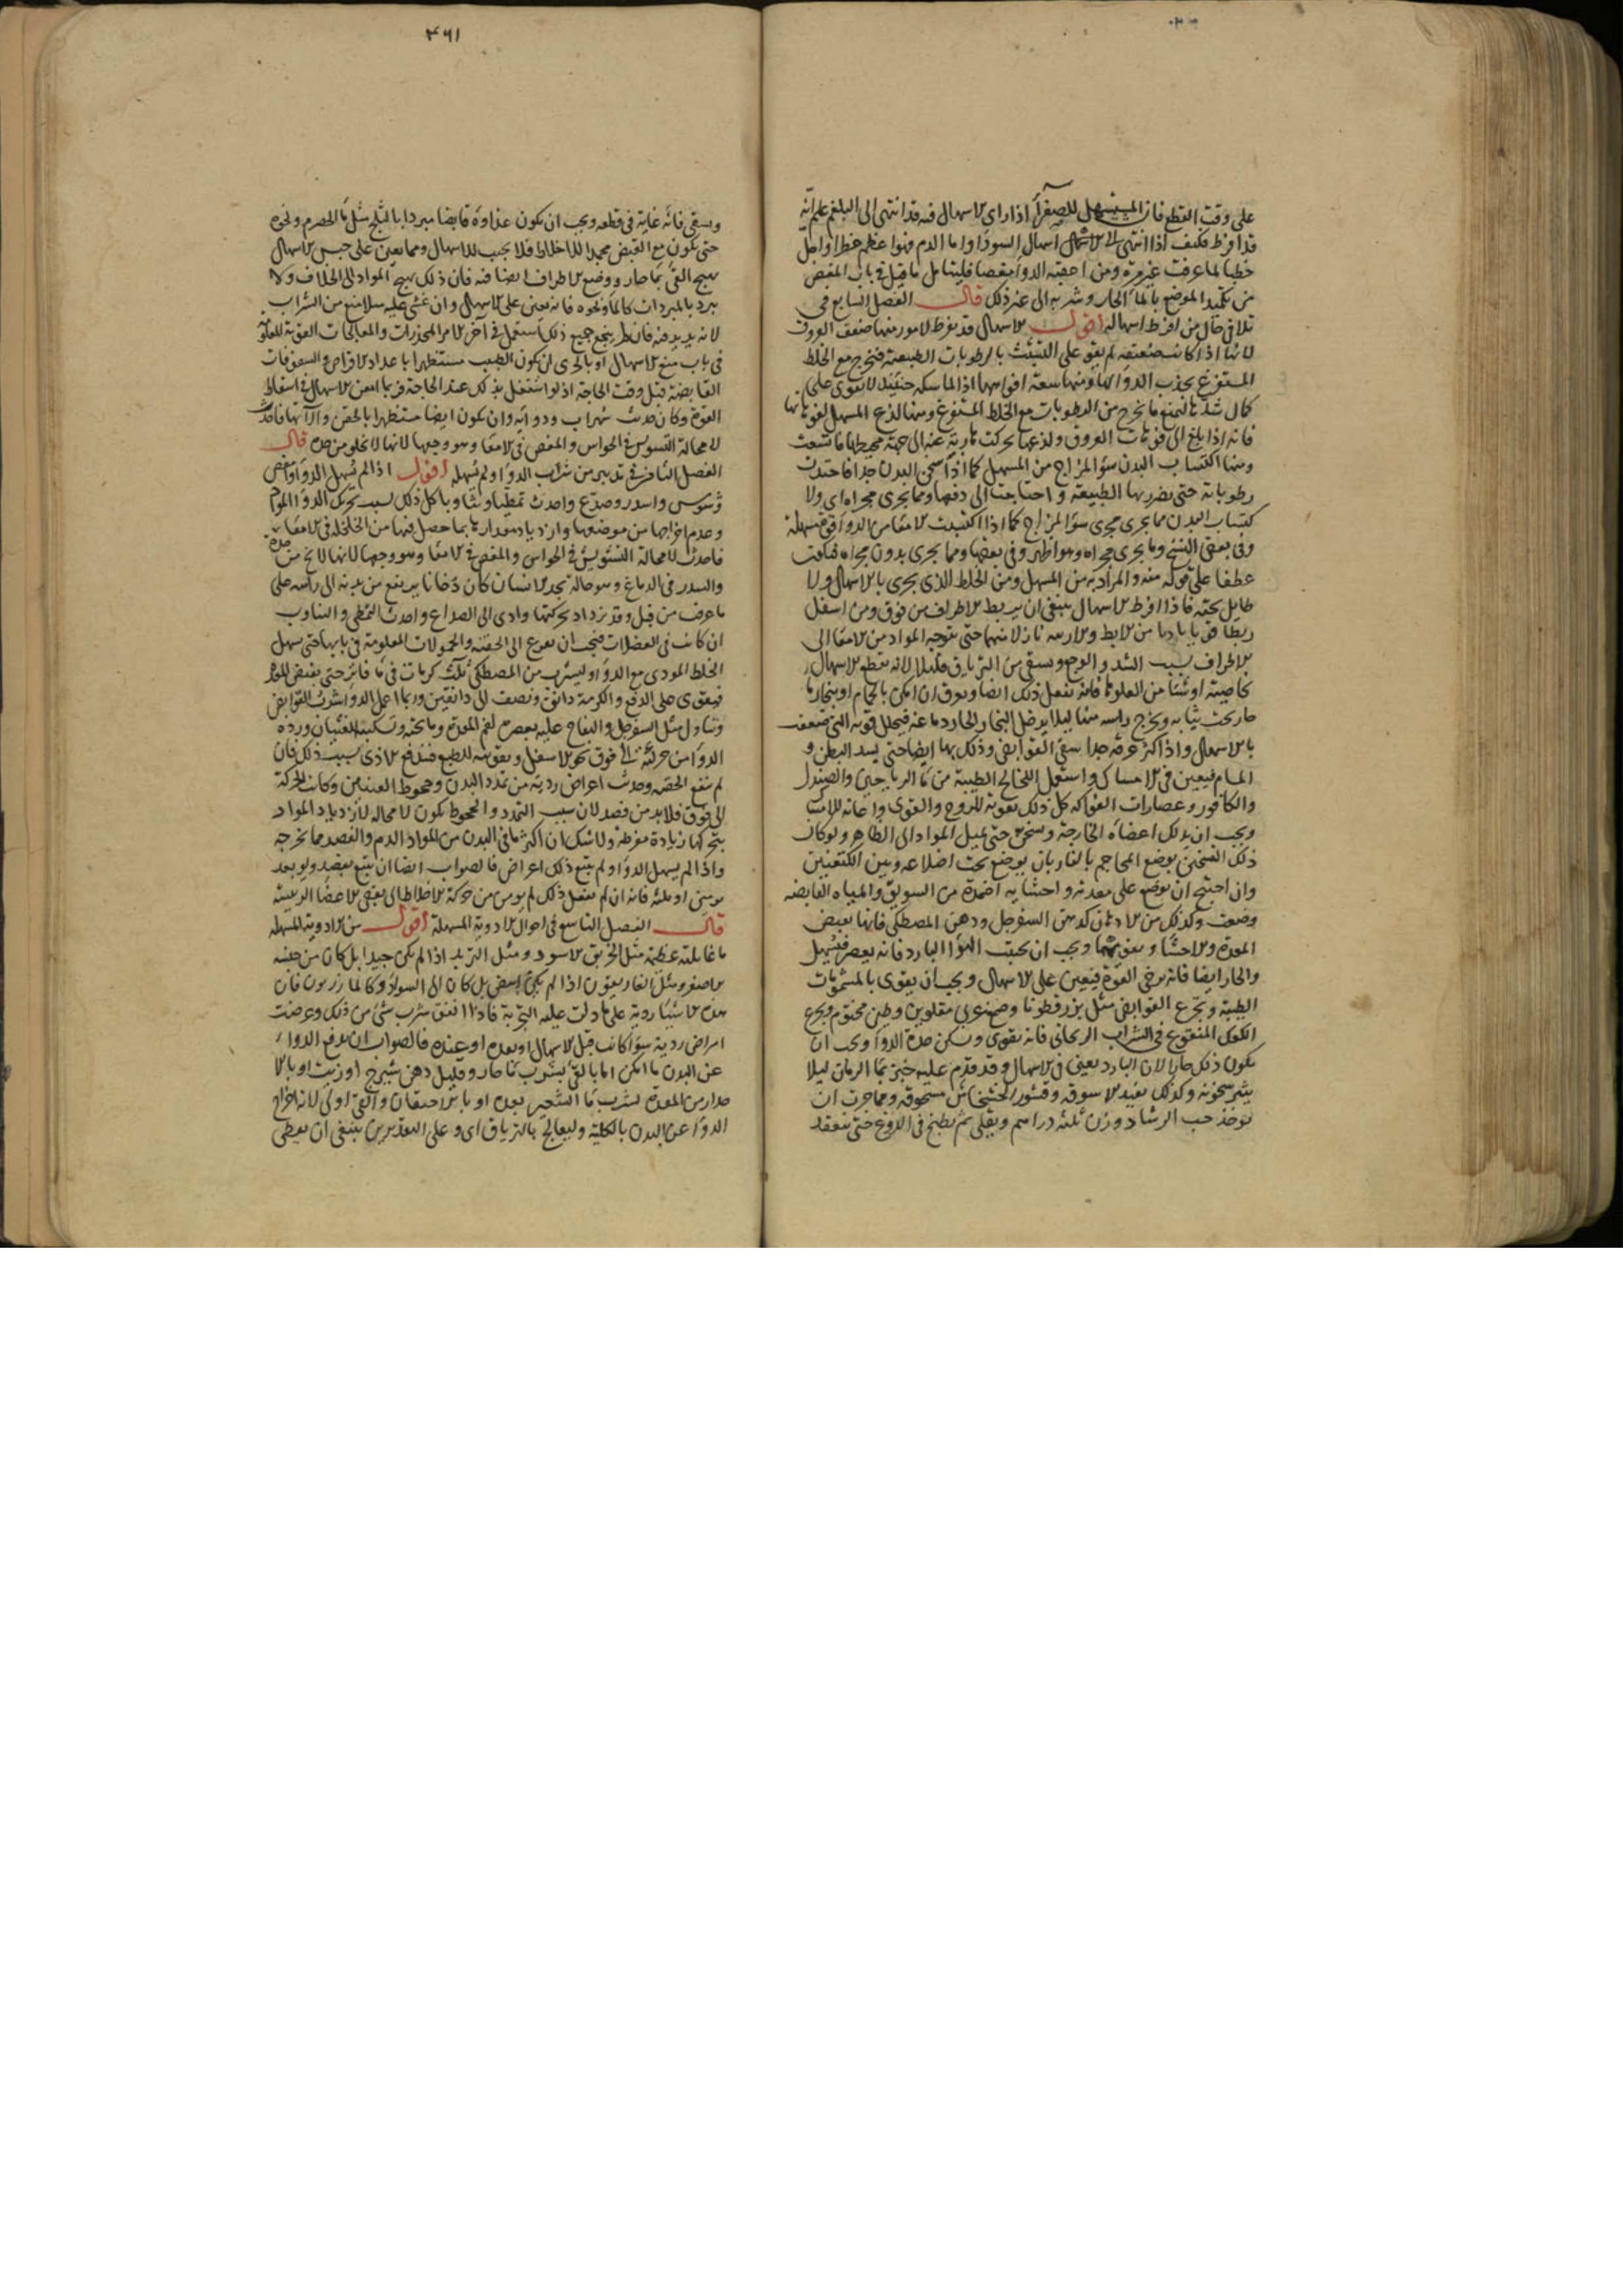 على وقت القطع فان المستسهل للصفرا اذا راى الاسهال فيه قد انتهى الى البلغم علم انه
قد افرط فكيف اذا انتهى الى الاسهال اسهال السودا واما الدم فهو اعظم خطرا واجل
خطبا لما عرفت غير مرة ومن اعقبه الدوا مغصا فليتامل ما قيل في باب المغص
من تكميد الموضع بالماء الحار وشربه الى غير ذلك قال الفصل السابع في
تلافي حال من افرط اسهاله اقول الاسهال قد يفرط لامور منها ضعف العروق
لانها اذا كانت ضعيفة لم تقو على التشبث بالرطوبات الطبيعة فتخرج مع الخلط
المستفرغ بجذب الدوا لها ومنها سعة افواهها اذ الماسكة حينئذ لا تقوى على
كمال شدها لتمنع ما يخرج من الرطوبات مع الخلط المستفرغ ومنها لذع المسهل لفوهاتها
فانه اذا بلغ الى فوهات العروق ولذعها تحركت هاربة عنه الى جهة محيطها فاتسعت
ومنها اكتساب البدن سوء المزاج من المسهل كما اذا اسخن البدن جدا فاحتدت
رطوباته حتى تضرر بها الطبيعة واحتاجت الى دفعها ومما يجرى مجراه اى ولا
كتساب البدن مما يجرى مجرى سوء المزاج كما اذا اكتسبت الامعا من الدوا قوة مسهلة
وفى بعض النسخ وما يجرى مجراه وهو اظهر وفى بعضها ومما يجرى بدون مجراه فكانت
عطفا على قوله منه والمراد به من المسهل ومن الخلط الذى يجرى بالاسهال ولا
طايل تحته فاذا افرط الاسهال ينبغى ان يربط الاطراف من فوق ومن اسفل
ربطا قويا باديا من الابط والاربية نازلا منهما حتى تتوجه المواد من الامعا الى
الاطراف بسبب الشد والوجع ويسقى من الترياق قليلا لانه يقطع الاسهال
بخاصيته او شيئا من الفلونيا فانه يفعل ذلك ايضا ويعرق ان امكن بالحمام او ببخار ما
حار تحت ثيابه ويخرج راسه منها ليلا يدخل البخار الحار دماغه فيحلل قوته التى ضعفت
بالاسهال واذا كثر عرقه جدا سقى القوابض وذلك بها ايضا حتى يسد البطن و
المسام فيعين فى الامساك واستعمل اللخالخ الطيبة من ماء الرياحين والصندل
والكافور وعصارات الفواكه كل ذلك تقوية للروح والقوى واعانة للامساك
ويجب ان يدلك اعضاؤه الخارجة ويسخن حتى تميل المواد الى الظاهر ولو كان
ذلك التسخين بوضع المحاجم بالنار بان يوضع تحت اضلاعه وبين الكتفين
وان احتيج ان توضع على معدته واحشائه اضمدة من السويق والمياه القابضه
وضعت وكذلك من الادهان كدهن السفرجل ودهن المصطكى فانها تقبض
المعدة والاحشا وتقويهما ويجب ان يجتنب الهوا البارد فانه يعصر فيسهل
والحار ايضا فانه يرخى القوة فيعين على الاسهال ويجب ان يقوى بالمشمومات
الطيبة ويجرع القوابض مثل بزر قطونا وصمغ عربى مقلوين وطين مختوم ويجرع
الكعك المنقوع فى الشراب الريحانى فانه يقوى ويسكن حدة الدوا ويجب ان
يكون ذلك حارا لان البارد يعين فى الاسهال وقد قدم عليه خبز بماء الرمان ليلا
يثير سخونة وكذلك يفيد الاسوقه وقشور الخشخاش مسحوقه ومما جرب ان
يوخذ حب الرشاد وزن ثلثه دراهم ويقلى ثم يطبخ فى الدوغ حتى ينعقد
٤٦١
ويسقى فانه غاية فى قطعه ويجب ان يكون غذاؤه قابضا مبردا بالثلج مثل ماء الحصرم ونحوه
حتى يكون مع القبض مجمدا للاخلاط فلا تجيب للاسهال ومما يعين على حبس الاسهال
تهييج القئ بماء حار ووضع الاطراف ايضا فيه فان ذلك يهيج المواد الى الخلاف ولا
يبرد بالمبردات كالماء ونحوه فانه يعين على الاسهال وان غشى عليه فلا منع من الشراب
لانه يزيد فيه فان لم ينجع جميع ذلك استعمل فى آخر الامر المخدرات والمعالجات القوية المعلومة
فى باب منع الاسهال او بالحرى ان يكون الطبيب مستظهرا باعداد الاقراص والسفوفات
القابضة قبل وقت الحاجة اذ لو اشتغل بذلك عند الحاجة فربما امعن الاسهال فى اسقاط
القوة وكان حدث شراب ودوائه وان يكون ايضا مستظهرا بالحقن وآلاتها فاحدث
لا محالة التشويش فى الحواس والمغص فى الامعا وهو وجهها لانها لا تخلو من حدة قال
الفصل الثامن فى تدبير من شرب الدوا ولم يسهله اقول اذا لم يسهل الدوا وامغص
وشوش واسدر وصدع واحدث تمطيا وتثاوبا كل ذلك بسبب تحريك الدوا المواد
وعدم اخراجها من موضعها وازدياد مقدارها بما حصل فيها من الخلخلة فى الامعا
فاحدث لا محالة التشويش فى الحواس والمغص فى الامعا وهو وجهها لانها لا تخ من حدة
والسدر فى الدماغ وهو حالة تجد الانسان كان دخانا يرتفع من بدنه الى راسه على
ما عرف من قبل وقد تزداد بحركتها وادى الى الصداع واحدث التمطى والتثاوب
ان كانت فى العضلات فيجب ان يفزع الى الحقنة والحمولات المعلومة فى بابها حتى يسهل
الخلط الموذى مع الدوا او ليشرب من المصطكى ثلث كرمات فى ماء فاتر حتى يقبض المعدة
فيقوى على الدفع والكرمة دانق ونصف الى دانقين وربما اعمل الدوا شرب القوابض
وتناول مثل السفرجل والتفاح عليه بعصره لفم المعدة وما تحته وتسكينه للغثيان ورده
الدوا من حركته الى فوق نحو الاسفل وتقويته للطبع فيندفع الاذى بسبب ذلك فان
لم تنفع الحقنه وحدث اعراض ردية من تمدد البدن وجحوظ العينين وكانت الحركة
الى فوق فلا بد من فصد لان سبب التمدد والجحوظ يكون لا محالة لازدياد المواد
بتحركها زيادة مفرطة ولا شك ان اكثر ما فى البدن من المواد الدم والفصد مما يخرجه
واذا لم يسهل الدوا ولم يتبع ذلك اعراض فالصواب ايضا ان يتبع بفصد ولو بعد
يومين او ثلثه فانه ان لم يفعل ذلك لم يومن من حركة الاخلاط الى بعض الاعضا الرئيسه
قال الفصل التاسع فى احوال الادوية المسهلة اقول من الادوية المسهلة
ما غايلته عظيمة مثل الخربق الاسود ومثل التربد اذا لم يكن جيدا بل كان من جنسه
الاصفر ومثل الغاريقون اذا لم يكن ابيض بل كان الى السواد وكالمازريون فان
هذه الاشيا ردية على ما دلت عليه التجربة فاذا اتفق شرب شئ من ذلك وعرضت
امراض ردية سواء كانت قبل الاسهال او بعده او عنده فالصواب ان يدفع الدوا
عن البدن ما امكن اما بالقئ بشرب ماء حار وقليل دهن شيرج او زيت او بالا
حدار من المعدة بشرب ماء الشعير بعده او بالاحتقان والقئ اولى لانه اخراج
الدوا عن البدن بالكلية وليعالج بالترياق اى وعلى التقديرين ينبغى ان يعطى